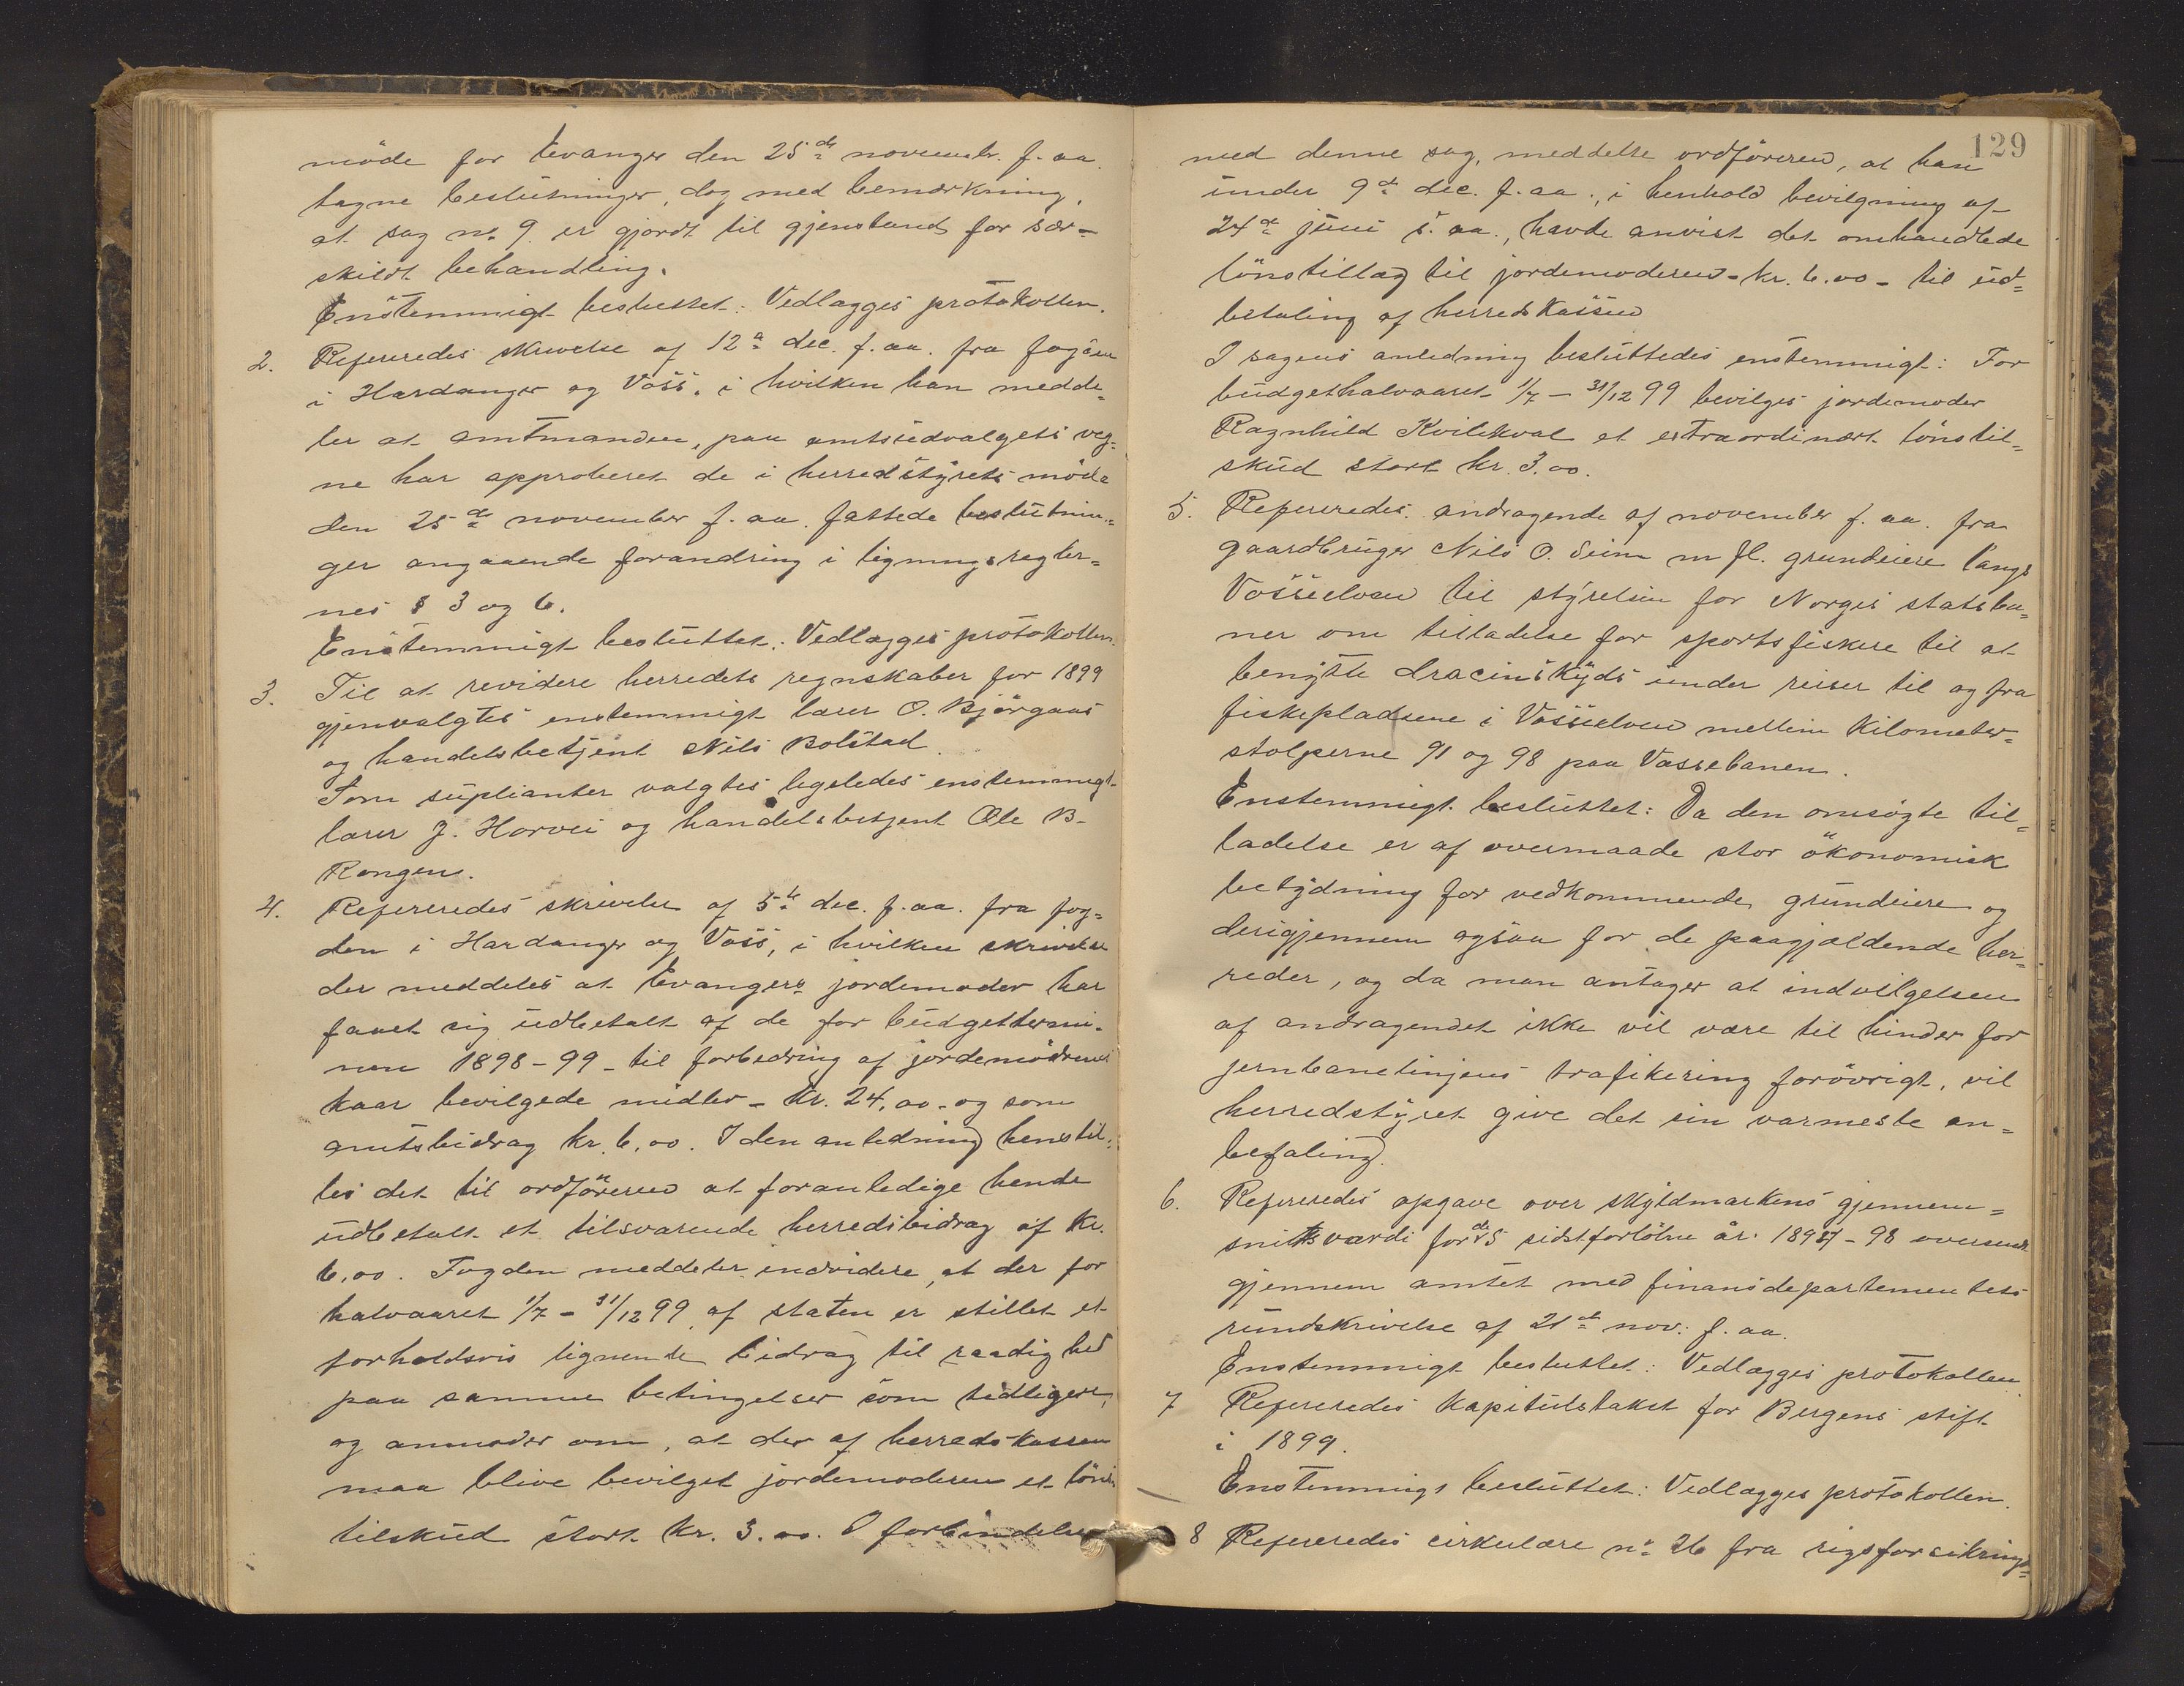 møde for Evanger den 25de novembr. f. aa.
tagne beslutninger, dog med bemærkning,
at sag nr. 9 er gjordt til gjenstand for sær-
skildt behandling.
Enstemmigt besluttet: Vedlægges protokollen.
2. Refereredes skrivelse af 12te dec. f. aa. fra fogden
i Hardanger og Voss, i hvilken han medde-
ler at amtmanden, paa amtsudvalgets veg-
ne har approberet de i herredstyrets møde
den 25de november f. aa. fattede beslutnin-
ger angaaende forandring i ligningsregler-
nes § 3 og 6.
Enstemmigt besluttet: Vedlægges protokollen.
3. Til at revidere herredets regnskaber for 1899
gjenvalgtes enstemmigt lærer O. Bjørgaas
og handelsbetjent Nils Bolstad.
Som suplianter valgtes ligeledes enstemmigt
lærer J. Horvei og handelsbetjent Ole B.
Rongen.
4. Refereredes skrivelse af 5te dec. f. aa. fra fog-
den i Hardanger og Voss, i hvilken skrivelse
der meddeles at Evangers jordemoder har
faaet sig udbetalt af de for budgettermi-
nen 1898-99 - til forbedring af jordemødrenes
kaar bevilgede midler - kr. 24,00 - og som
amtsbidrag kr. 6,00. I den anledning henstil-
les det til ordføreren at foranledige hende
udbetalt et tilsvarende herredsbidrag af kr.
6,00. Fogden meddeler endvidere, at der for
halvaaret 1/7 - 31/12 99 af staten er stillet et
forholdsvis lignende bidrag til raadighed
paa samme betingelser som tidligere,
og anmoder om, at der af herredskassen
maa blive bevilget jordemoderen et løns-
tilskud stort kr. 3.00. I forbindelse
129
med denne sag, meddelte ordføreren, at han
under 9de dec. f. aa., i henhold bevilgning af
24de juni s. aa., havde anvist det omhandlede
lønstillæg til jordemoderen - kr. 6.00 - til ud-
betaling af herredskassen
I sagens anledning besluttedes enstemmigt: For
budgethalvaaret 1/7 - 31/12 99 bevilges jordemoder
Ragnhild Kvilekval et extraordinært lønstil-
skud stort kr. 3.00.
5. Refereredes andragende af november f. aa. fra
gaardbruger Nils O. Seim m fl. grundeiere langs
Vosseelven til styrelsen for Norges statsba-
ner om tilladelse for sportsfiskere til at
benytte dracinskyds under reiser til og fra
fiskepladsene i Vosseelven mellem kilometer-
stolperne 91 og 98 paa Vossebanen.
Enstemmigt besluttet: Da den omsøgte til-
ladelse er af overmaade stor økonomisk
betydning for vedkommende grundeiere og
derigjennem ogsaa for de paagjældende her-
reder, og da man antager at indvilgelsen
af andragendet ikke vil være til hinder for
jernbanelinjens trafikering forøvrigt, vil
herredstyret give det sin varmeste an-
befaling.
6. Refereredes opgave over skyldmarkens gjennem-
snitsværdi for de 5 sidstforløbne år: 1897-98 oversendt
gjennem amtet med finansdepartementets
rundskrivelse af 21de nov. f. aa.
Enstemmigt besluttet: Vedlægges protokollen
7 Refereredes kapitulstakst for Bergens stift
i 1899.
Enstemmigt besluttet: Vedlægges protokollen.
8 Refereredes cirkulære nr. 26 fra rigsforsikrings-